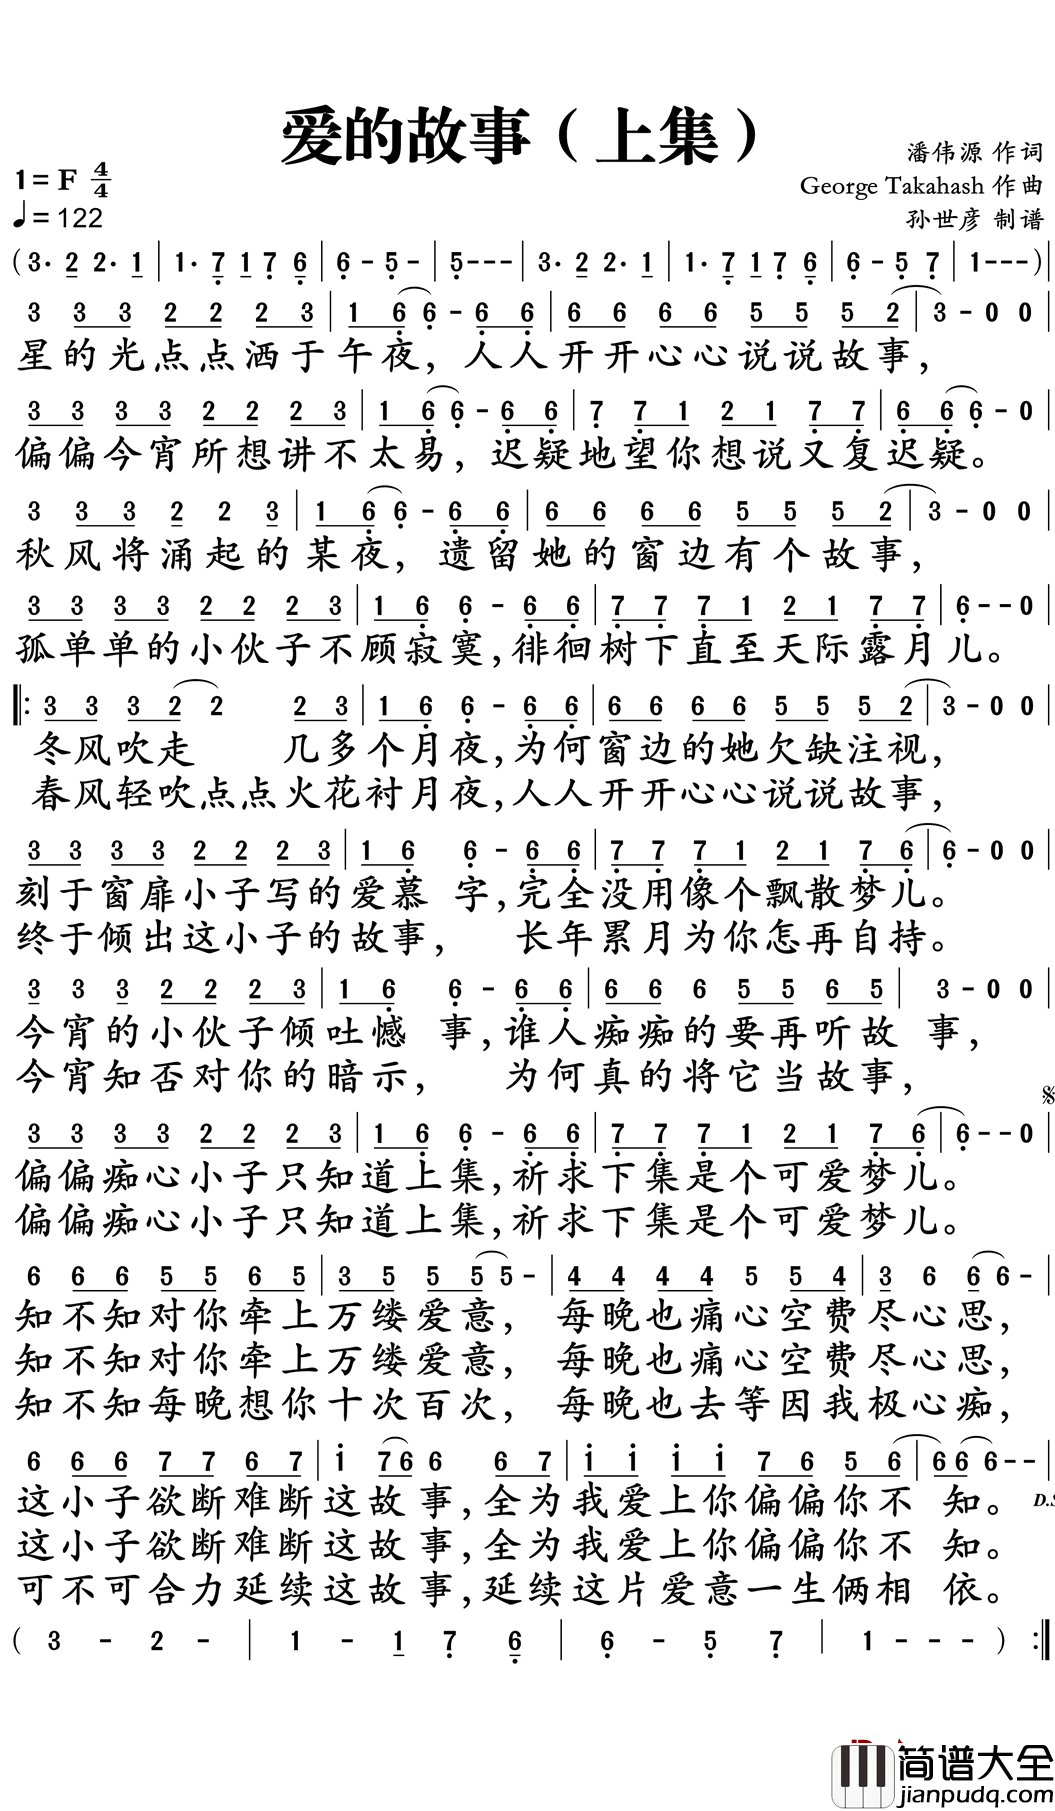 爱的故事（上集）
潘伟源 作词
1=F 4/4
George Takahash 作曲
♩=122
孙世彦 制谱
(3· 2 2· 1 | 1· 7 1 7 6 | 6 - 5 - | 5 - - - | 3· 2 2· 1 | 1· 7 1 7 6 | 6 - 5 7 | 1 - - - )|
3 3 3 2 2 2 3 | 1 6 6 - 6 6 | 6 6 6 6 5 5 5 2 | 3 - 0 0 |
星的光点点洒于午夜，人人开开心心说说故事，
3 3 3 3 2 2 2 3 | 1 6 6 - 6 6 | 7 7 1 2 1 7 7 | 6 6 6 - 0 |
偏偏今宵所想讲不太易，迟疑地望你想说又复迟疑。
3 3 3 2 2 3 | 1 6 6 - 6 6 | 6 6 6 6 5 5 5 2 | 3 - 0 0 |
秋风将涌起的某夜，遗留她的窗边有个故事，
3 3 3 3 2 2 2 3 | 1 6 6 - 6 6 | 7 7 7 1 2 1 7 7 | 6 - - 0 |
孤单单的小伙子不顾寂寞，徘徊树下直至天际露月儿。
‖: 3 3 3 2 2 2 3 | 1 6 6 - 6 6 | 6 6 6 6 5 5 5 2 | 3 - 0 0 |
冬风吹走 几多个月夜，为何窗边的她欠缺注视，
春风轻吹点点火花衬月夜，人人开开心心说说故事，
3 3 3 3 2 2 2 3 | 1 6 6 - 6 6 | 7 7 7 1 2 1 7 6 | 6 - 0 0 |
刻于窗扉小子写的爱慕 字，完全没用像个飘散梦儿。
终于倾出这小子的故事， 长年累月为你怎再自持。
3 3 3 2 2 2 3 | 1 6 6 - 6 6 | 6 6 6 5 5 6 5 | 3 - 0 0 |
今宵的小伙子倾吐憾 事，谁人痴痴的要再听故 事，
今宵知否对你的暗示， 为何真的将它当故事，
𝄋
3 3 3 3 2 2 2 3 | 1 6 6 - 6 6 | 7 7 7 1 2 1 7 6 | 6 - - 0 |
偏偏痴心小子只知道上集，祈求下集是个可爱梦儿。
偏偏痴心小子只知道上集，祈求下集是个可爱梦儿。
6 6 6 5 5 6 5 | 3 5 5 5 5 - | 4 4 4 4 5 5 4 | 3 6 6 6 - |
知不知对你牵上万缕爱意， 每晚也痛心空费尽心思，
知不知对你牵上万缕爱意， 每晚也痛心空费尽心思，
知不知每晚想你十次百次， 每晚也去等因我极心痴，
6 6 6 7 7 6 7 | i 7 6 6 6 7 | i i i i 7 6 5 6 | 6 6 6 - - |
这小子欲断难断这故 事，全为我爱上你偏偏你不 知。 D.S
这小子欲断难断这故 事，全为我爱上你偏偏你不 知。
可不可合力延续这故 事，延续这片爱意一生俩相 依。
( 3 - 2 - | 1 - 1 7 6 | 6 - 5 7 | 1 - - - ) :‖
简谱大全
jianpudq.com